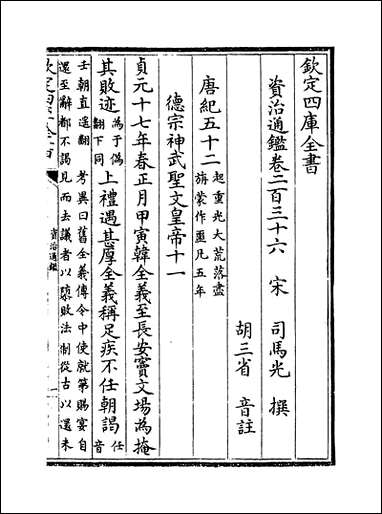 欽定四庫全書
資治通鑑卷二百三十六　宋　司馬光　撰
胡三省　音註
唐紀五十二起重光大荒落盡
旃蒙作噩凡五年
德宗神武聖文皇帝十一
貞元十七年春正月甲寅韓全義至長安竇文場為掩
其敗迹為于偽
翻下同上禮遇甚厚全義稱足疾不任朝謁任
音
壬朝直遥翻　考異曰舊全義傳令中使就第賜宴自
還至辭都不謁見而去議者以隳敗法制從古以還未
資治通鑑